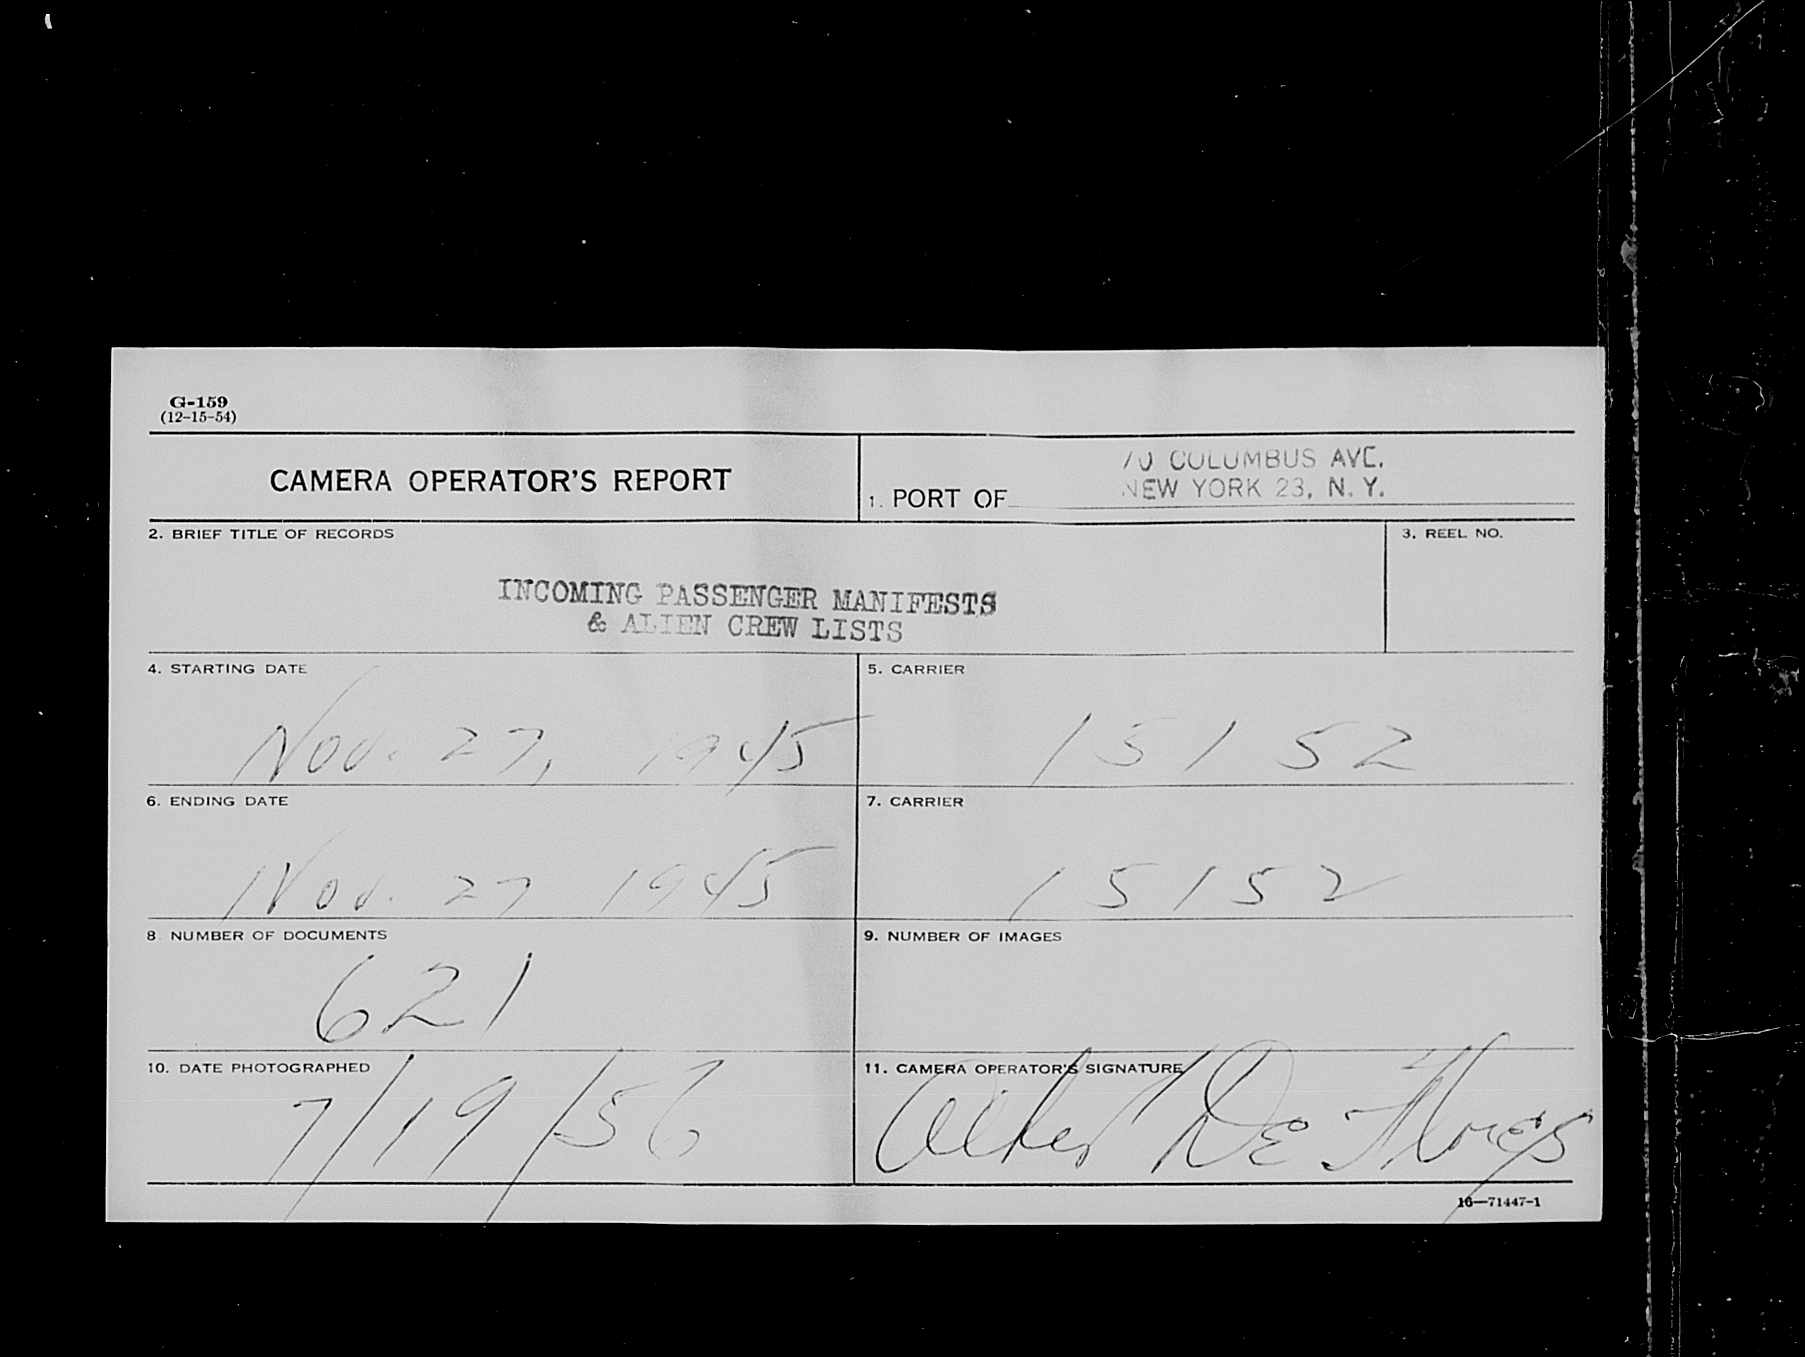 G-159
(12-15-54)
CAMERA OPERATOR'S REPORT
70 COLUMBUS AVE.
1. PORT OF NEW YORK 23, N. Y.
2. BRIEF TITLE OF RECORDS
3. REEL NO.
INCOMING PASSENGER MANIFESTS
& ALIEN CREW LISTS
4. STARTING DATE
5. CARRIER
Nov. 27, 1945
15152
6. ENDING DATE
7. CARRIER
Nov. 27 1945
15152
8. NUMBER OF DOCUMENTS
9. NUMBER OF IMAGES
621
10. DATE PHOTOGRAPHED
11. CAMERA OPERATOR'S SIGNATURE
7/19/56
De Flores
16—71447-1